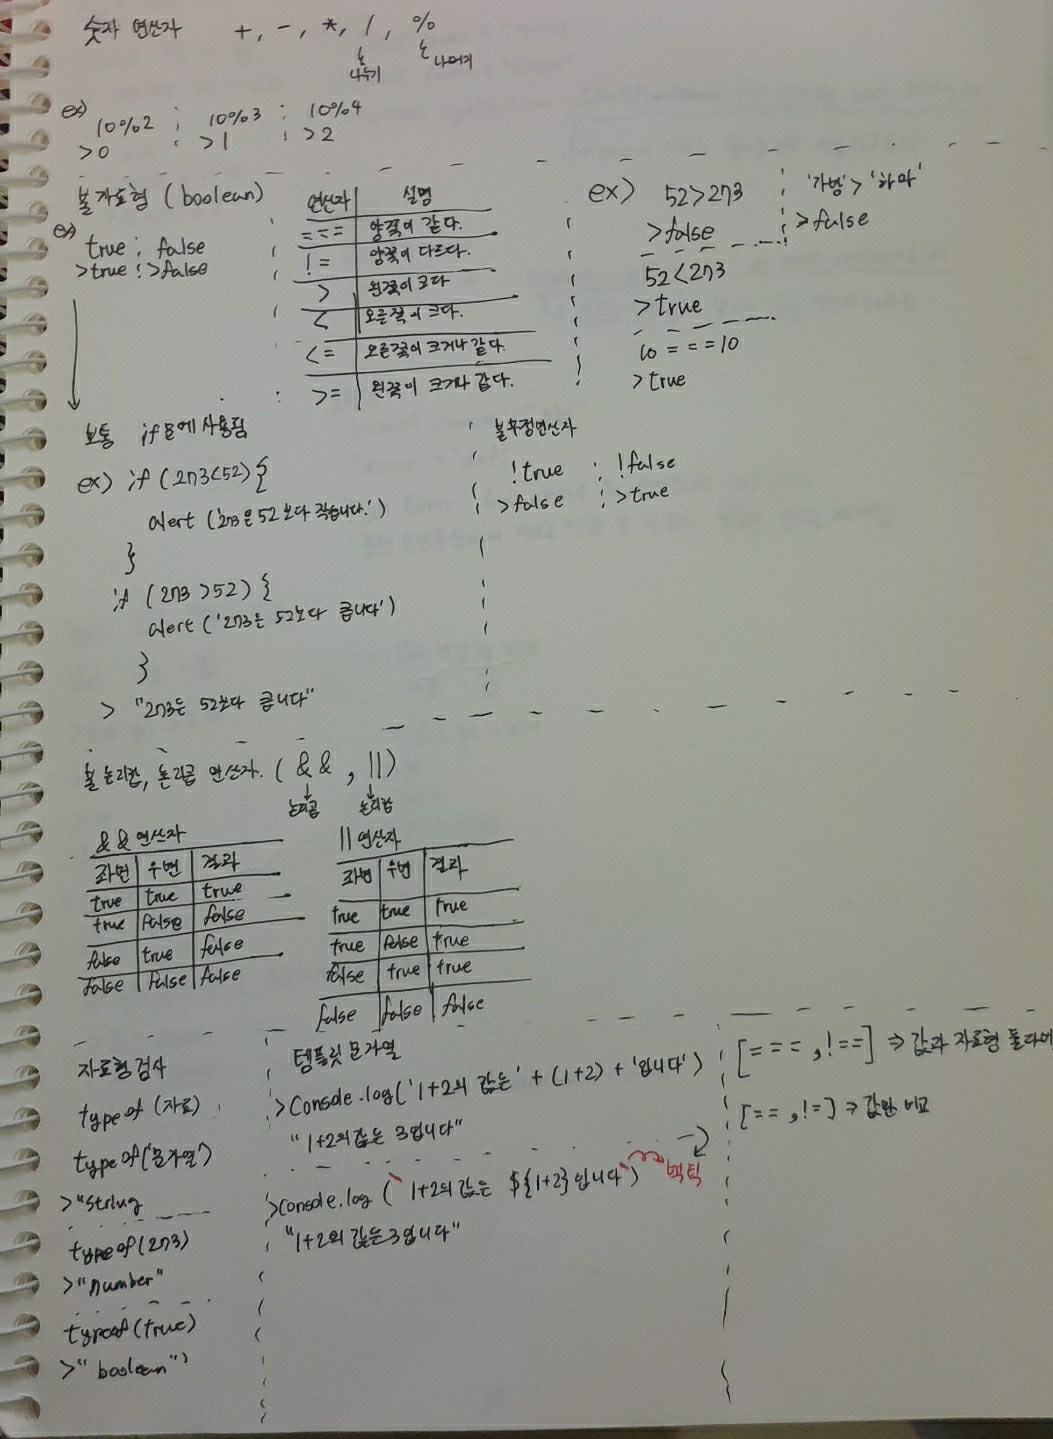 숫자 연산자 +, -, *, /, %
나누기 나머지
ex)
10%2 10%3 10%4
>0 >1 >2
불 자료형 (boolean)
ex)
true false
>true >false
연산자 설명
=== 양쪽이 같다.
!= 양쪽이 다르다.
> 왼쪽이 크다
< 오른쪽이 크다.
<= 오른쪽이 크거나 같다.
>= 왼쪽이 크거나 같다.
ex) 52>273
>false
52<273
>true
10===10
>true
'가방'>'하마'
>false
보통 if문에 사용됨
ex) if (273<52) {
alert ('273은 52보다 작습니다.')
}
if (273 >52) {
alert ('273은 52보다 큽니다')
}
> "273은 52보다 큽니다"
불 부정연산자
!true !false
>false >true
불 논리합, 논리곱 연산자. ( && , ||)
논리곱 논리합
&& 연산자
좌변 우변 결과
true true true
true false false
false true false
false false false
|| 연산자
좌변 우변 결과
true true true
true false true
false true true
false false false
자료형 검사
typeof (자료)
typeof('문자열')
>"string
typeof(273)
>"number"
typeof(true)
>"boolean")
템플릿 문자열
>Console.log('1+2의 값은' + (1+2) + '입니다')
"1+2의 값은 3입니다"
>console.log (`1+2의 값은 ${1+2}입니다`) 백틱
"1+2의 값은 3입니다"
[=== , !==] ⇒ 값과 자료형 둘다비
[== , !=] ⇒ 값만 비교